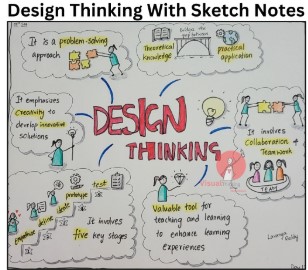 Design Thinking With Sketch Notes
It is a problem-solving
approach
Theoretical
knowledge
bridges the
gap between
practical
application
It emphasizes
Creativity to
develop innovative
solutions
DESIGN
THINKING
It involves
Collaboration &
Teamwork
TEAM
empathize
define
ideate
prototype
test
It involves
five key stages
Valuable tool for
teaching and learning
to enhance learning
experiences